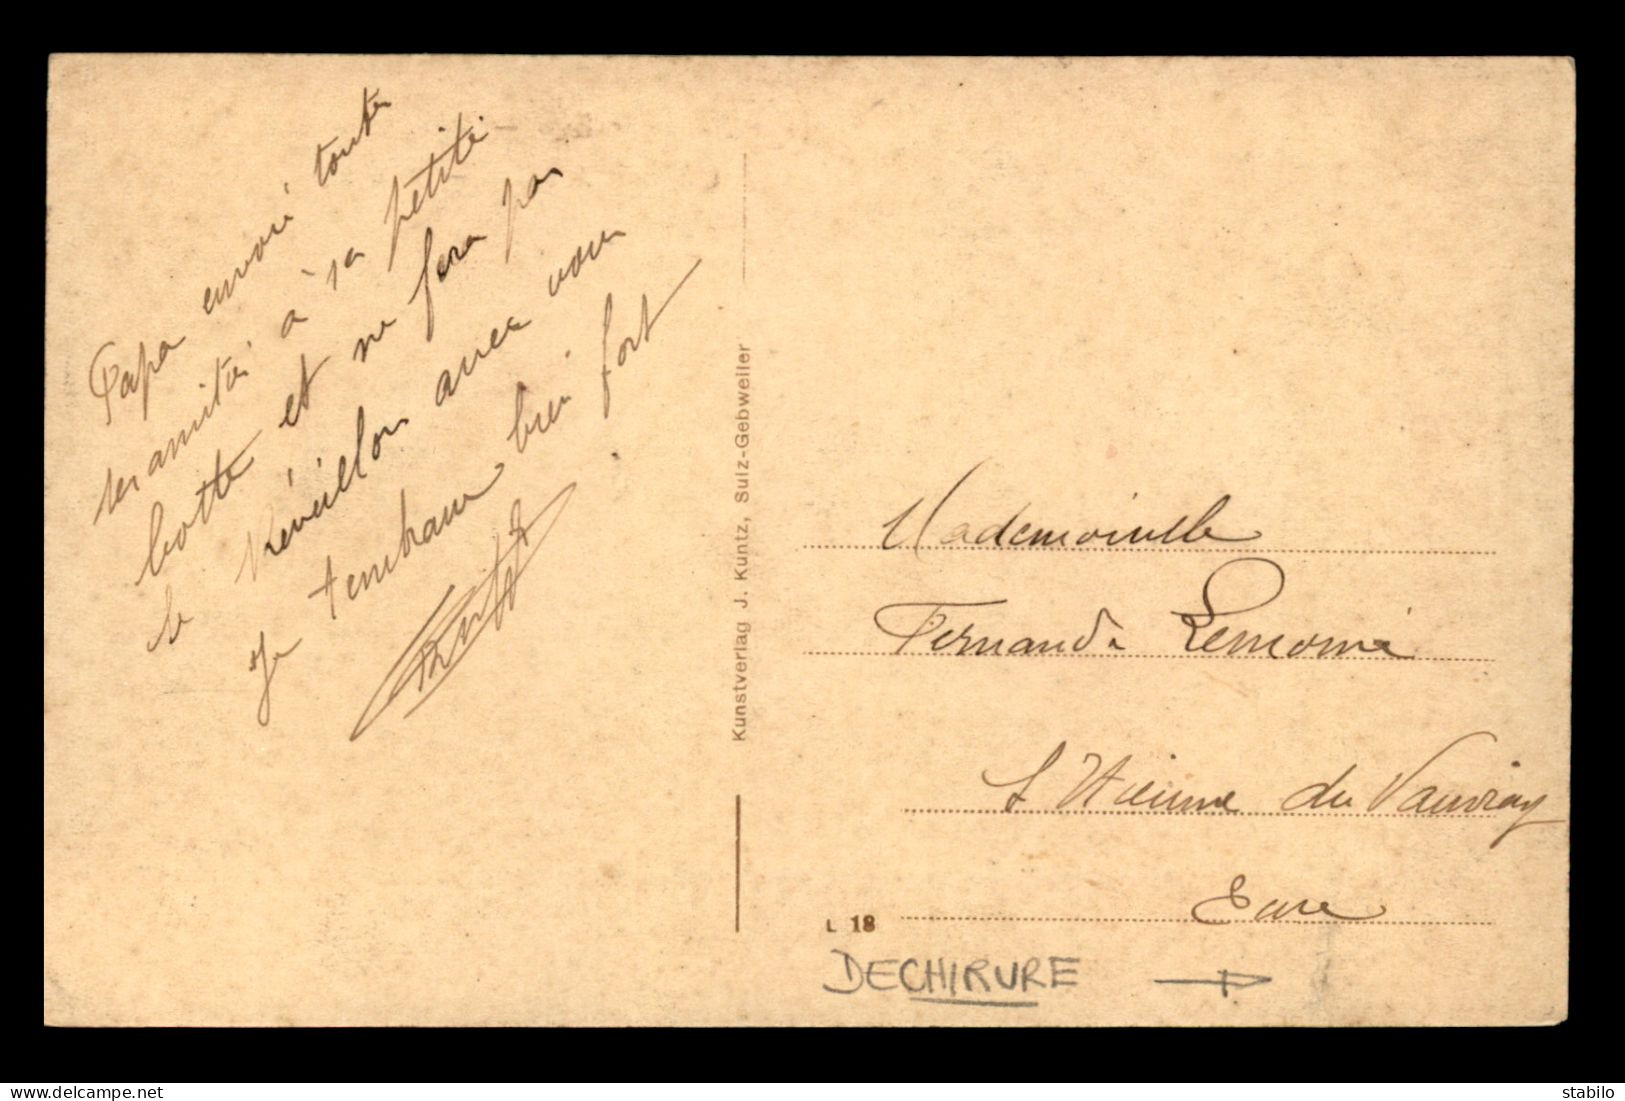 Papa envoie toute
ses amitiés à sa petite
botte et ne fera pas
le Réveillon avec vous
Je t'embrasse bien fort
Kunstverlag J. Kuntz, Sulz-Gebweiler
Mademoiselle
Fernande Lemoine
St Etienne du Vauvray
Eure
L 18
DECHIRURE
delcampe.net
stabilo